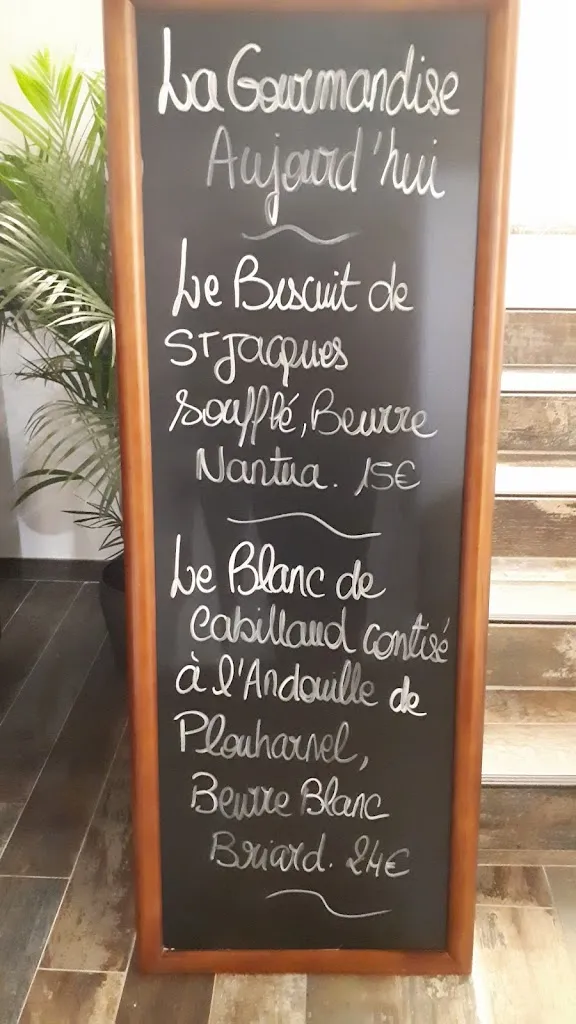 La Gourmandise
Aujourd'hui
Le Biscuit de
ST Jacques
Soufflé, Beurre
Nantua. 15€
Le Blanc de
Cabillaud contisé
à l'Andouille de
Plouharnel,
Beurre Blanc
Briard. 24€